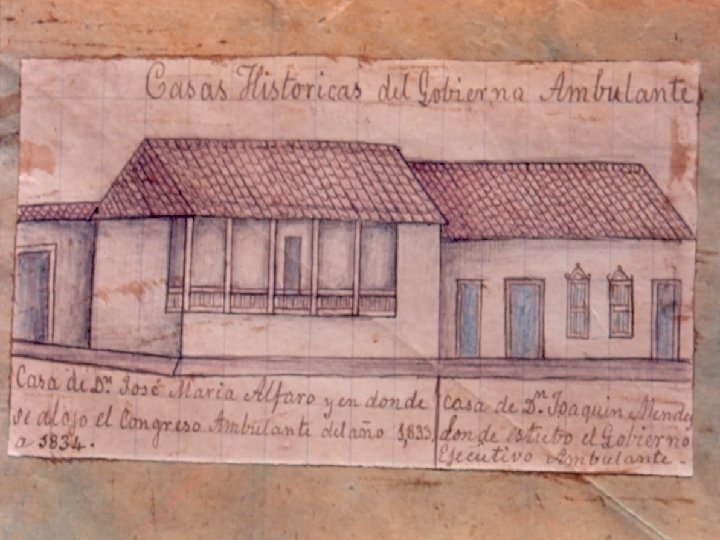 Casas Historicas del Gobierno Ambulante
Casa de Dn José Maria Alfaro y en donde
se alojo el Congreso Ambulante del año 1,833
a 1834.
Casa de Dn Joaquin Mendez
donde estubo el Gobierno
Ejecutivo Ambulante -